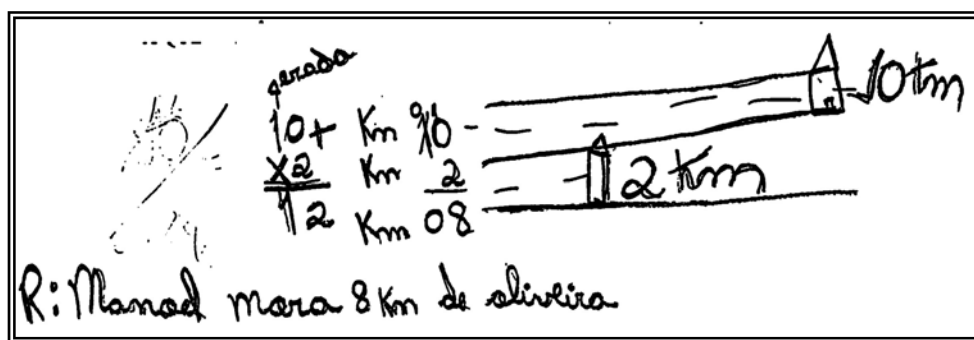 errado
10+ Km 10 - 10 km
x2 Km 2 2 Km
12 Km 08
R: Manoel mora 8 Km de oliveira